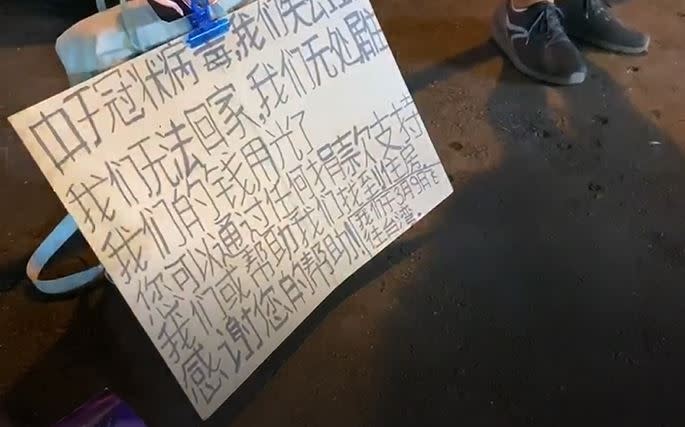 由于冠状病毒,我们失去
我们无法回家,我们无处居住
我们的钱用光了
您可以通过任何捐款支持
我们或帮助我们找到住屋
感谢您的帮助!(我们于3月9日
往台湾.